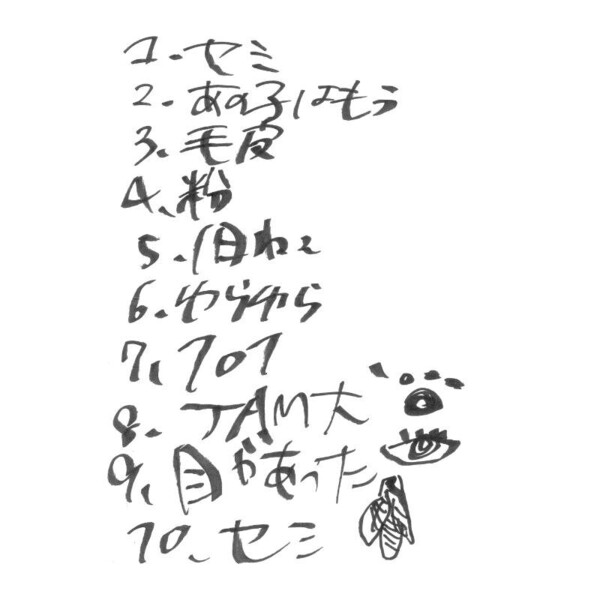 1. セミ
2. あの子はもう
3. 毛皮
4. 粉
5. 1日ねこ
6. ゆらゆら
7. 707
8. JAM大
9. 目があった
10. セミ